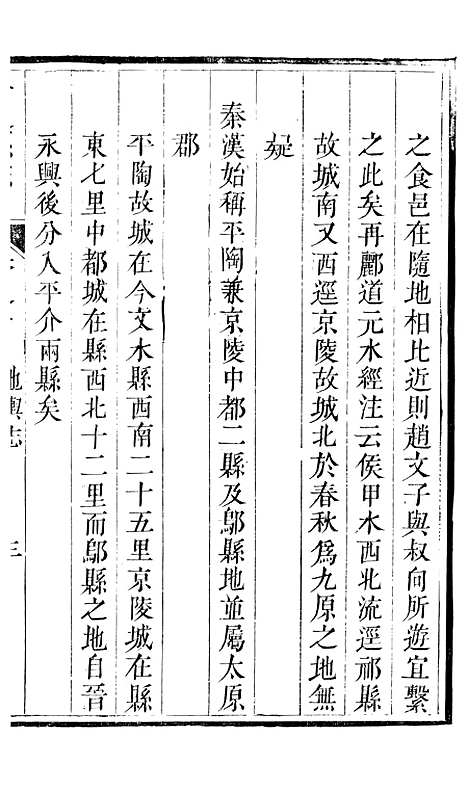 之食邑在隨地相比近則趙文子與叔向所遊宜繫
之此矣再酈道元水經注云侯甲水西北流逕祁縣
故城南又西逕京陵故城北於春秋爲九原之地無
疑
秦漢始稱平陶兼京陵中都二縣及鄔縣地並屬太原
郡
平陶故城在今文水縣西南二十五里京陵城在縣
東七里中都城在縣西北十二里而鄔縣之地自晉
永興後分入平介兩縣矣
地輿志
三